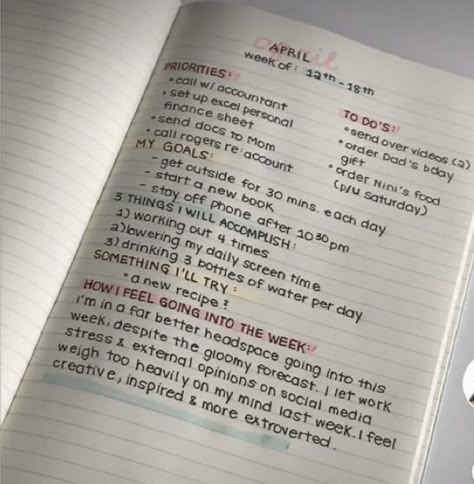 april
APRIL
week of: 12th - 18th
PRIORITIES:
• call w/ accountant
• set up excel personal
finance sheet
• send docs to Mom
• call rogers re: account
TO DO'S:
• send over videos (2)
• order Dad's bday
gift
• order Nini's food
(p/u Saturday)
MY GOALS:
- get outside for 30 mins. each day
- start a new book
- stay off phone after 10:30 pm
3 THINGS I WILL ACCOMPLISH:
1) working out 4 times
2) lowering my daily screen time
3) drinking 3 bottles of water per day
SOMETHING I'LL TRY:
• a new recipe?
HOW I FEEL GOING INTO THE WEEK:
I'm in a far better headspace going into this
week, despite the gloomy forecast. I let work
stress & external opinions on social media
weigh too heavily on my mind last week. I feel
creative, inspired & more extroverted.